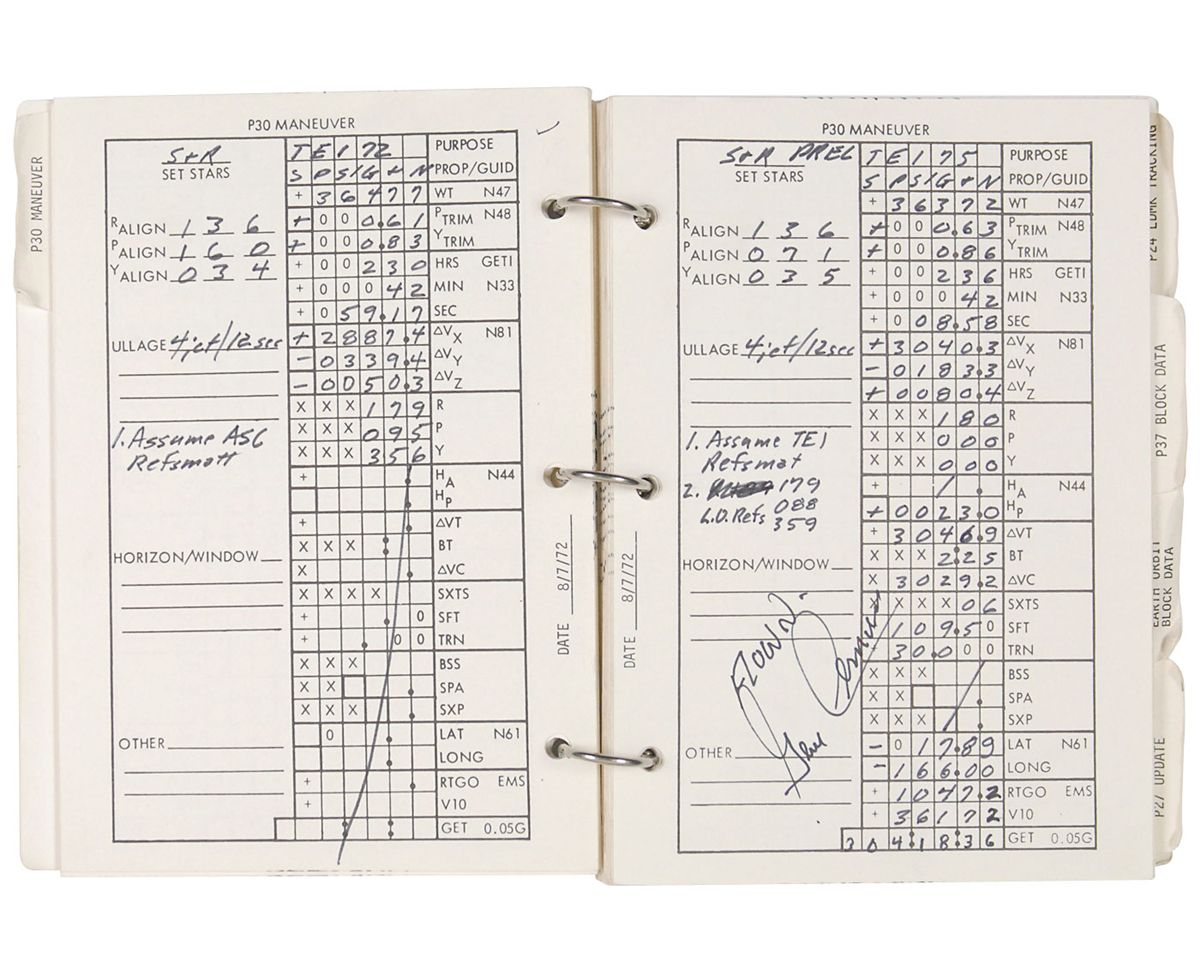 P30 MANEUVER
P30 MANEUVER
S+R TEI 72 PURPOSE
SET STARS S PS/G+N PROP/GUID
+ 3 6 4 7 7 WT N47
R ALIGN 1 3 6 + 0 0 0.6 1 P TRIM N48
P ALIGN 1 6 0 + 0 0 0.8 3 Y TRIM
Y ALIGN 0 3 4 + 0 0 2 3 0 HRS GETI
+ 0 0 0 4 2 MIN N33
+ 0 5 9.1 7 SEC
ULLAGE 4jet/12sec + 2 8 8 7.4 ΔVX N81
- 0 3 3 9.4 ΔVY
- 0 0 5 0.3 ΔVZ
X X X 1 7 9 R
1. Assume ASC X X X 0 9 5 P
Refsmatt X X X 3 5 6 Y
+ HA N44
HP
+ ΔVT
HORIZON/WINDOW X X X BT
X ΔVC
X X X X SXTS
+ 0 SFT
+ 0 0 TRN
X X X BSS
X X SPA
X X X SXP
OTHER 0 LAT N61
LONG
+ RTGO EMS
+ V10
GET 0.05G
DATE 8/7/72
P30 MANEUVER
S+R PREL TEI 75 PURPOSE
SET STARS S PS/G+N PROP/GUID
+ 3 6 3 7 2 WT N47
R ALIGN 1 3 6 + 0 0 0.6 3 P TRIM N48
P ALIGN 0 7 1 + 0 0 0.8 6 Y TRIM
Y ALIGN 0 3 5 + 0 0 2 3 6 HRS GETI
+ 0 0 0 4 2 MIN N33
+ 0 0 8.5 8 SEC
ULLAGE 4jet/12sec + 3 0 4 0.3 ΔVX N81
- 0 1 8 3.3 ΔVY
+ 0 0 8 0.4 ΔVZ
X X X 1 8 0 R
1. Assume TEI X X X 0 0 0 P
Refsmat X X X 0 0 0 Y
2. 179 + HA N44
L.O. Refs 088 + 0 0 2 3.0 HP
359 + 3 0 4 6.9 ΔVT
HORIZON/WINDOW X X X 2:2 5 BT
X 3 0 2 9.2 ΔVC
X X X X 0 6 SXTS
+ 1 0 9.5 0 SFT
+ 3 0.0 0 0 TRN
X X X BSS
X X SPA
X X X SXP
FLOWN
Gene Cernan
OTHER - 0 1 7.8 9 LAT N61
- 1 6 6.0 0 LONG
+ 1 0 4 7.2 RTGO EMS
+ 3 6 1 7 2 V10
3 0 4:1 8:3 6 GET 0.05G
DATE 8/7/72
P24 LDMK TRACKING
P37 BLOCK DATA
EARTH ORBIT
BLOCK DATA
P27 UPDATE